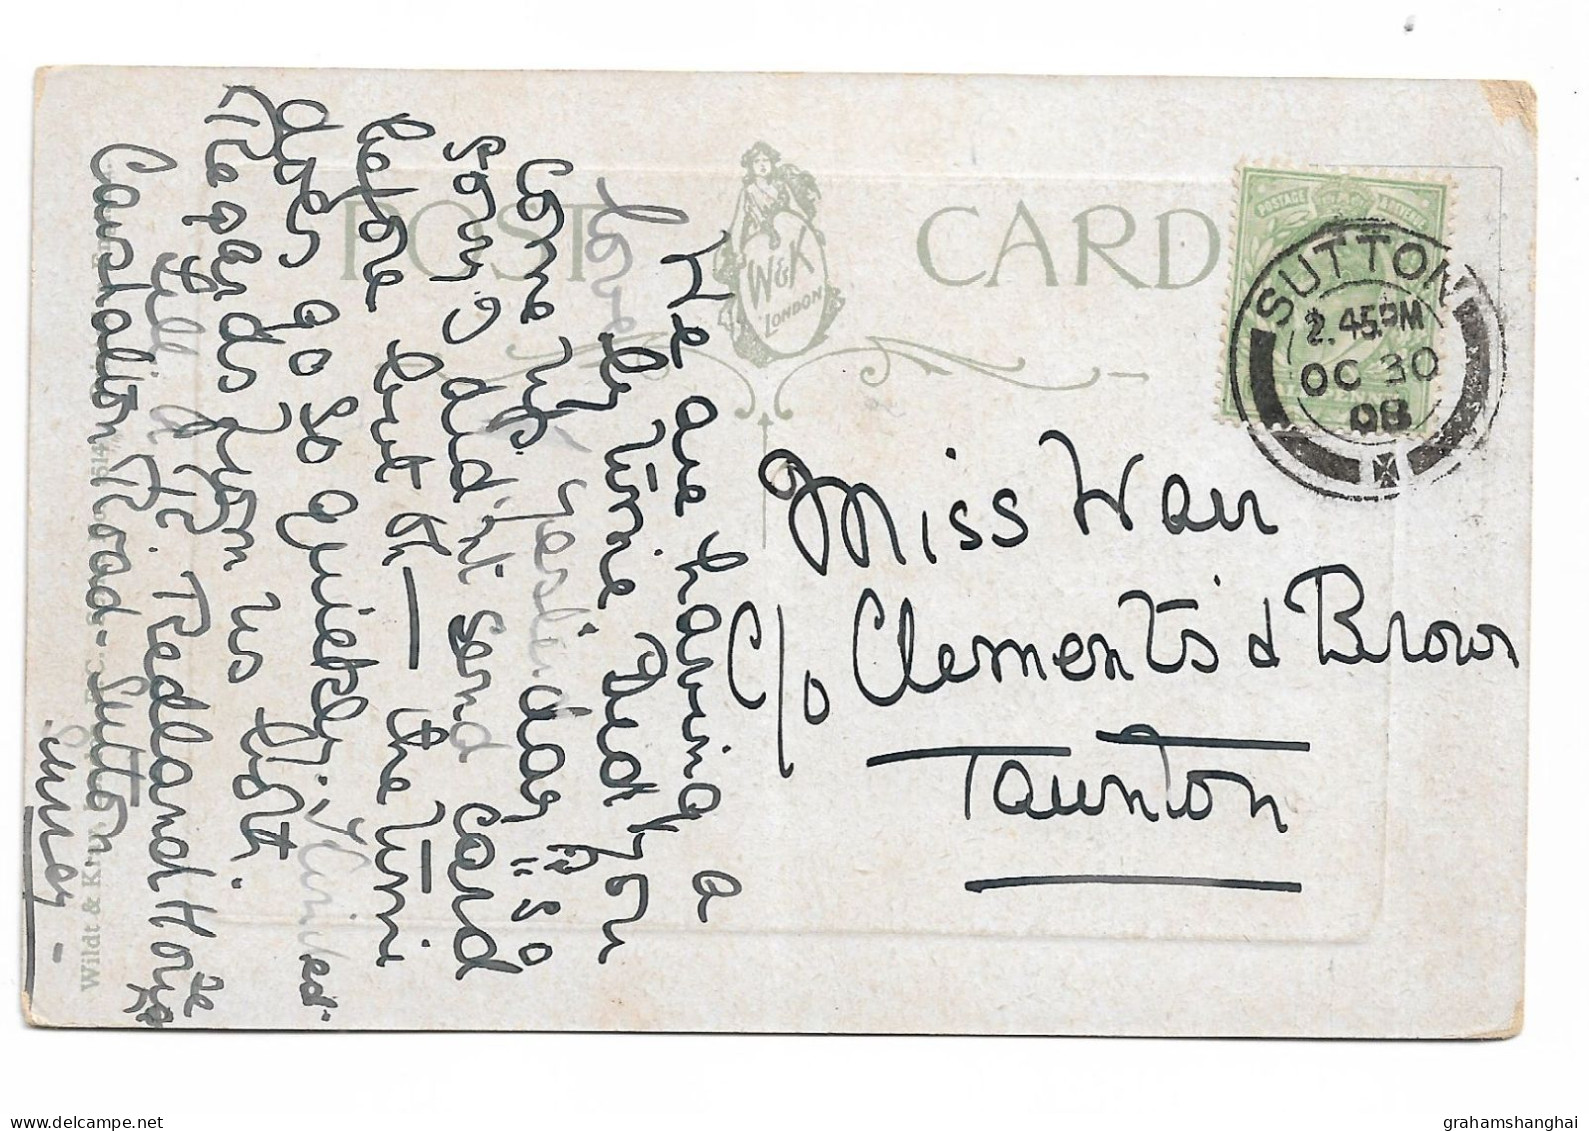 POST CARD
W&K
LONDON
SUTTON
2.45PM
OC 30
08
POSTAGE
Miss Warr
c/o Clements & Brown
Taunton
We are having a
lovely time Aud you
come up yesterday :: so
sorry I did'nt send card
before but th— the time
does go so quickly. Kindest
Regards from us both.
Will d Tc. Redland House
Carshalton Road - Sutton
Surrey -
Wildt & Kray
grahamshanghai
delcampe.net